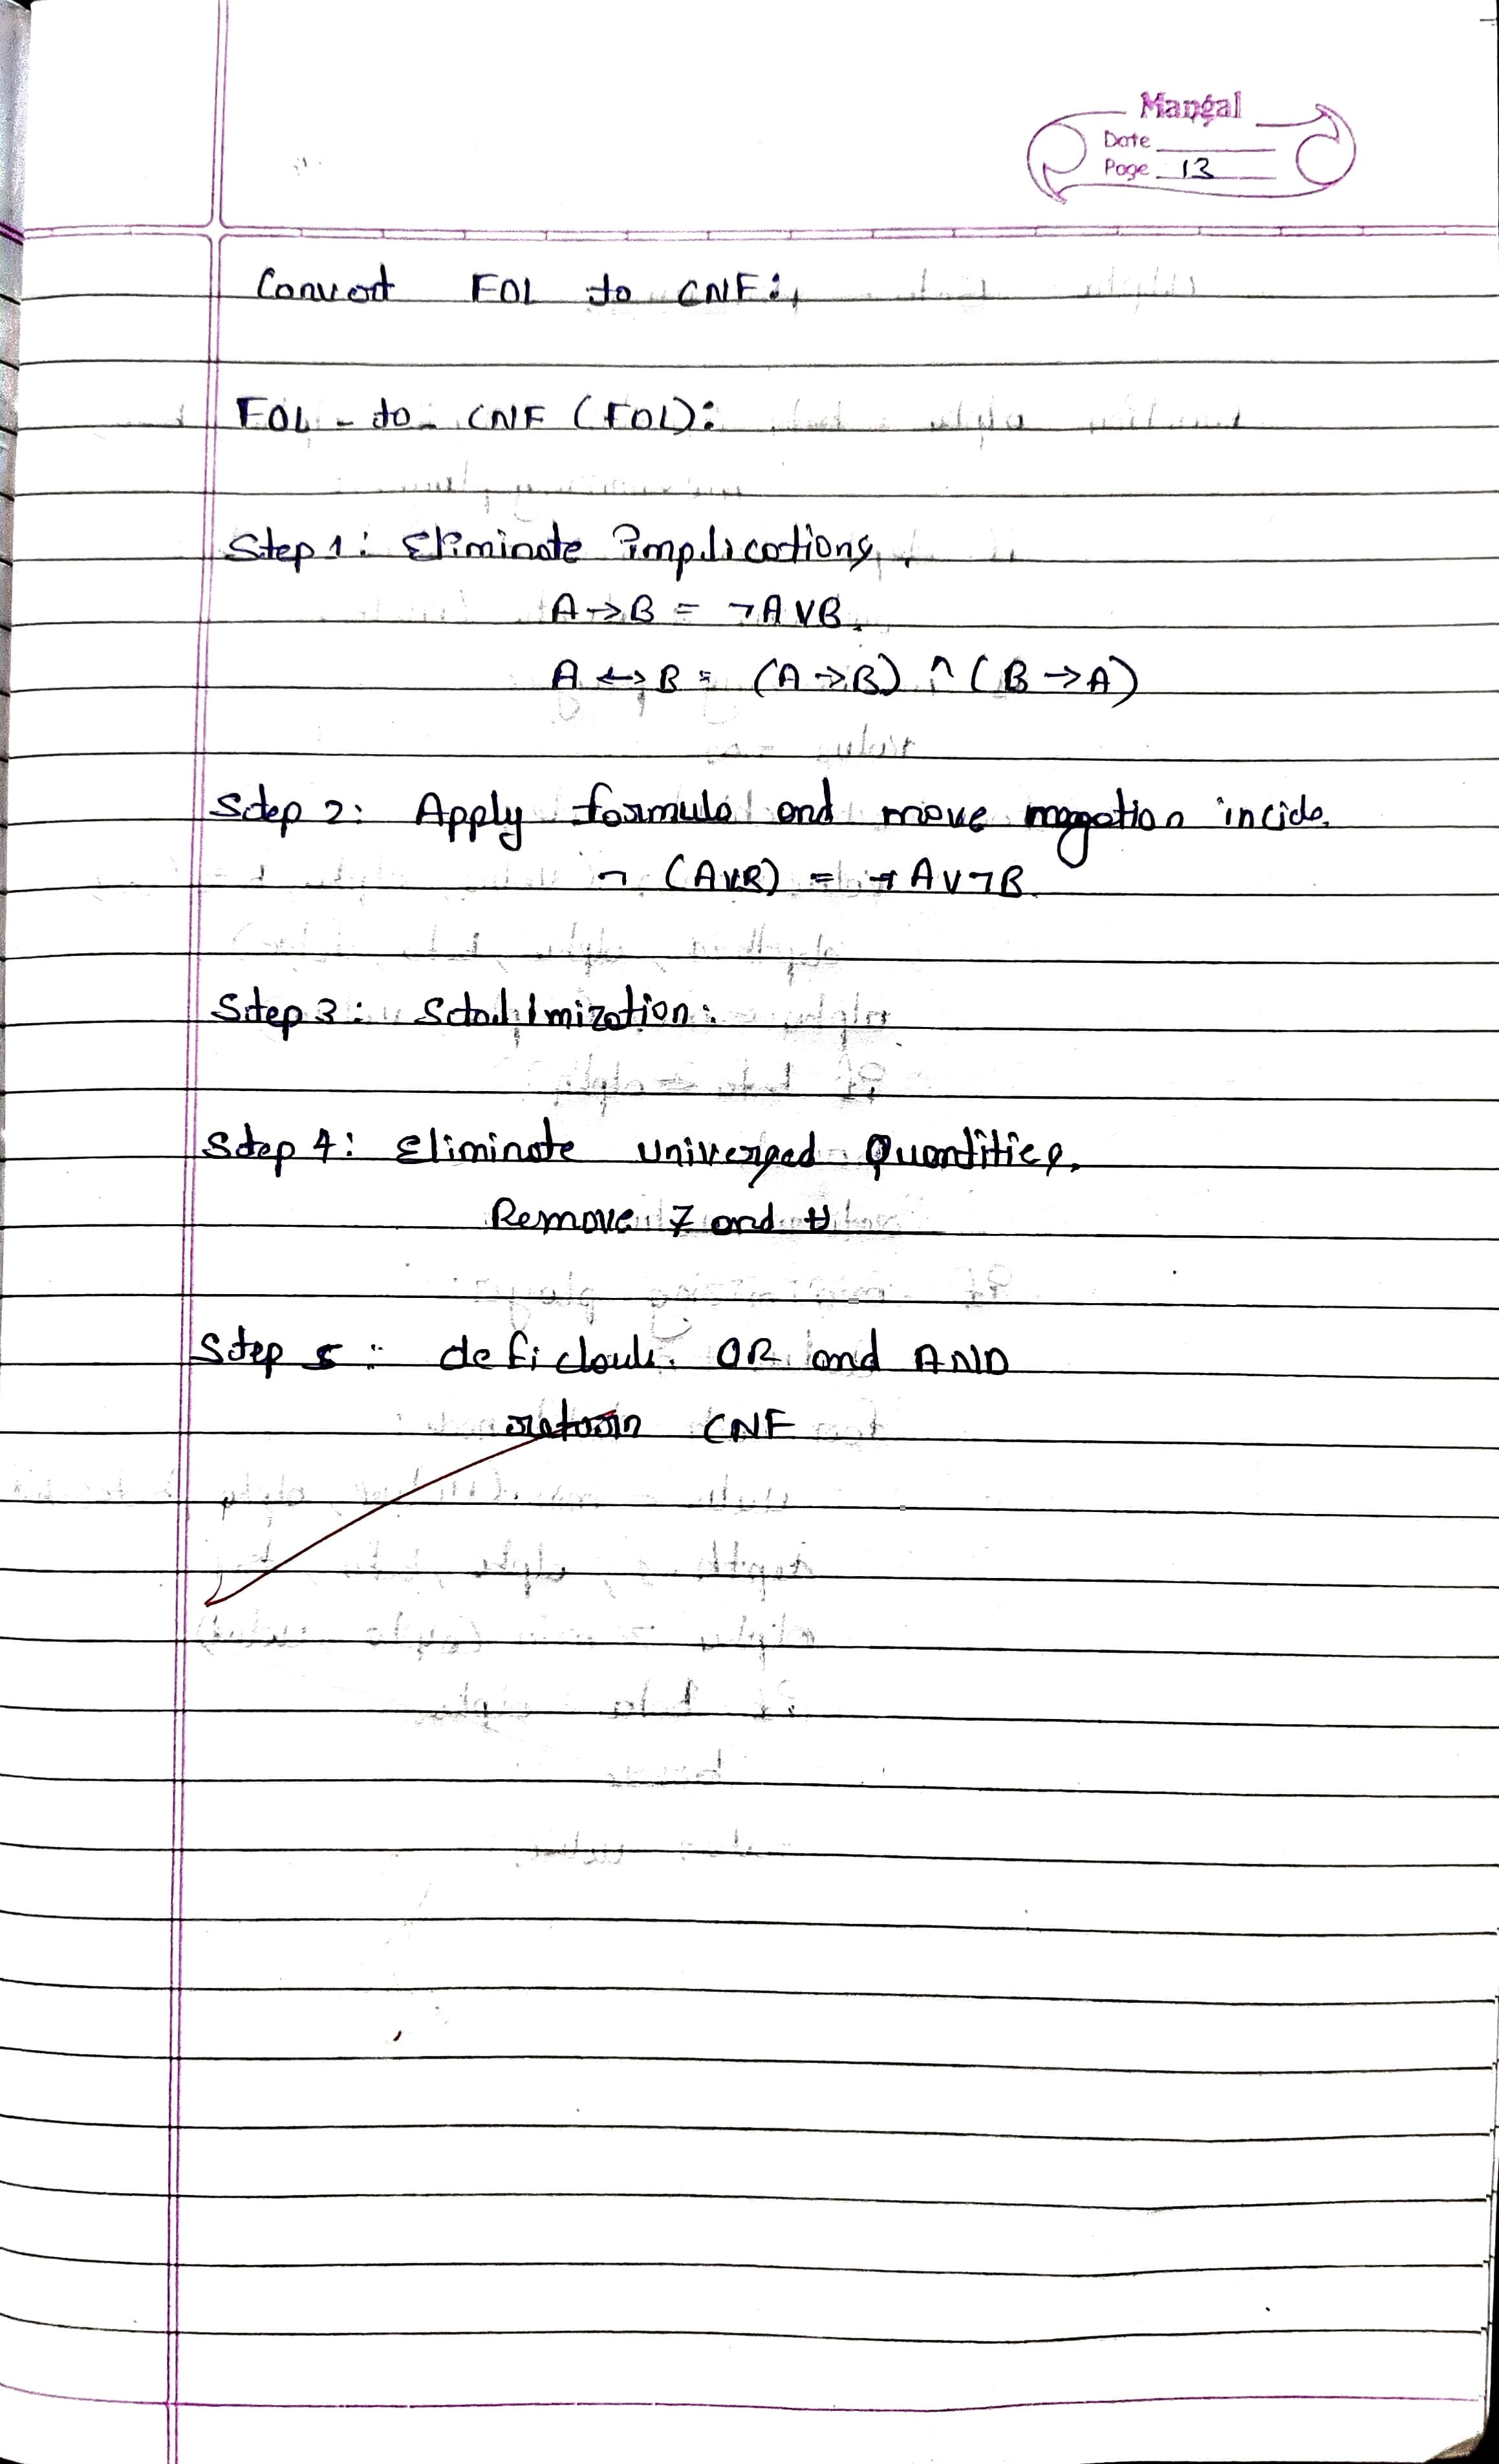 Mangal
Date
Page 13
Convert FOL to CNF:
FOL - to - CNF (FOL):
Step 1: Eliminate implications
A → B = ¬A ∨ B.
A ↔ B = (A → B) ^ (B → A)
Step 2: Apply formula and move negation incide.
¬ (A ∨ B) = ¬ A ∨ ¬ B.
Step 3:
Step 4: Eliminate Quantities.
Remove and
Step 5: OR and AND
return CNF